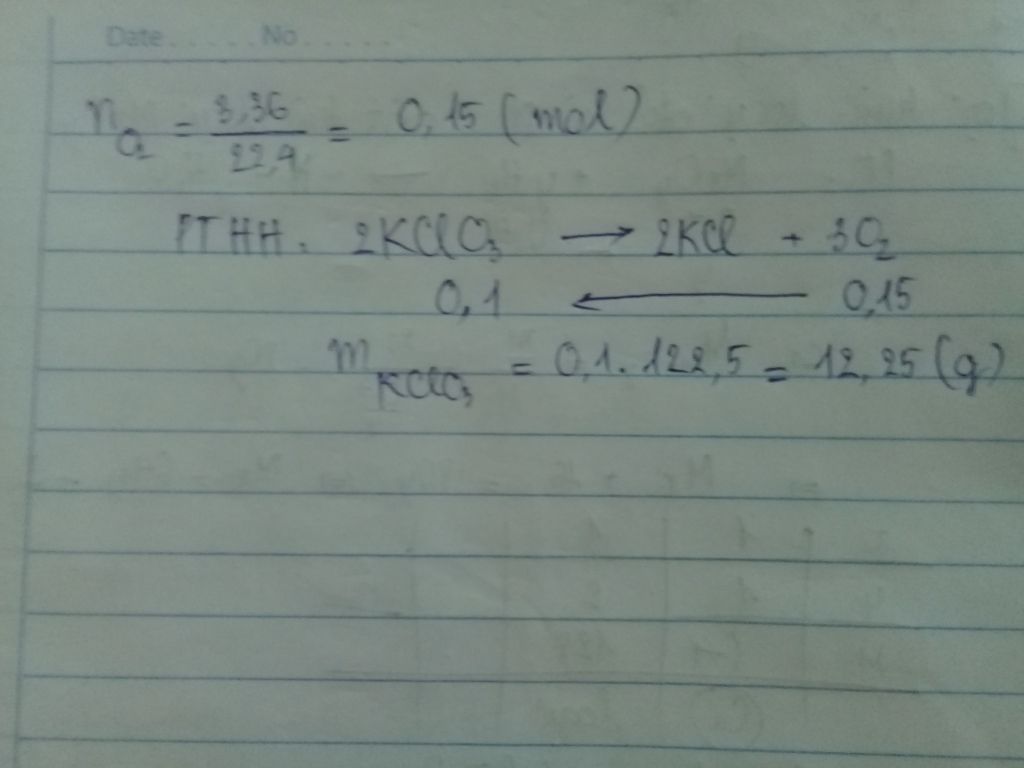 Date.....No.....
n O2 = 3,36 / 22,4 = 0,15 (mol)
PTHH. 2KClO3 → 2KCl + 3O2
0,1 ← 0,15
m KClO3 = 0,1. 122,5 = 12,25 (g)